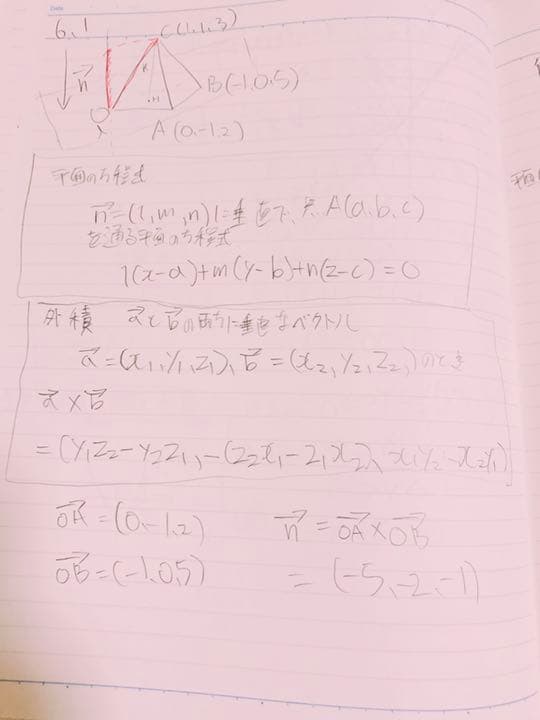 6,1
C(1,1,3)
n
H
B(-1,0,5)
O
A(0,-1,2)
平面の方程式
n=(l,m,n)に垂直で、点A(a,b,c)
を通る平面の方程式
l(x-a)+m(y-b)+n(z-c)=0
外積 aとbの両方に垂直なベクトル
a=(x₁,y₁,z₁)、b=(x₂,y₂,z₂)のとき
a×b
=(y₁z₂-y₂z₁,-(z₂x₁-z₁x₂),x₁y₂-x₂y₁)
OA=(0,-1,2) n=OA×OB
OB=(-1,0,5) =(-5,-2,-1)